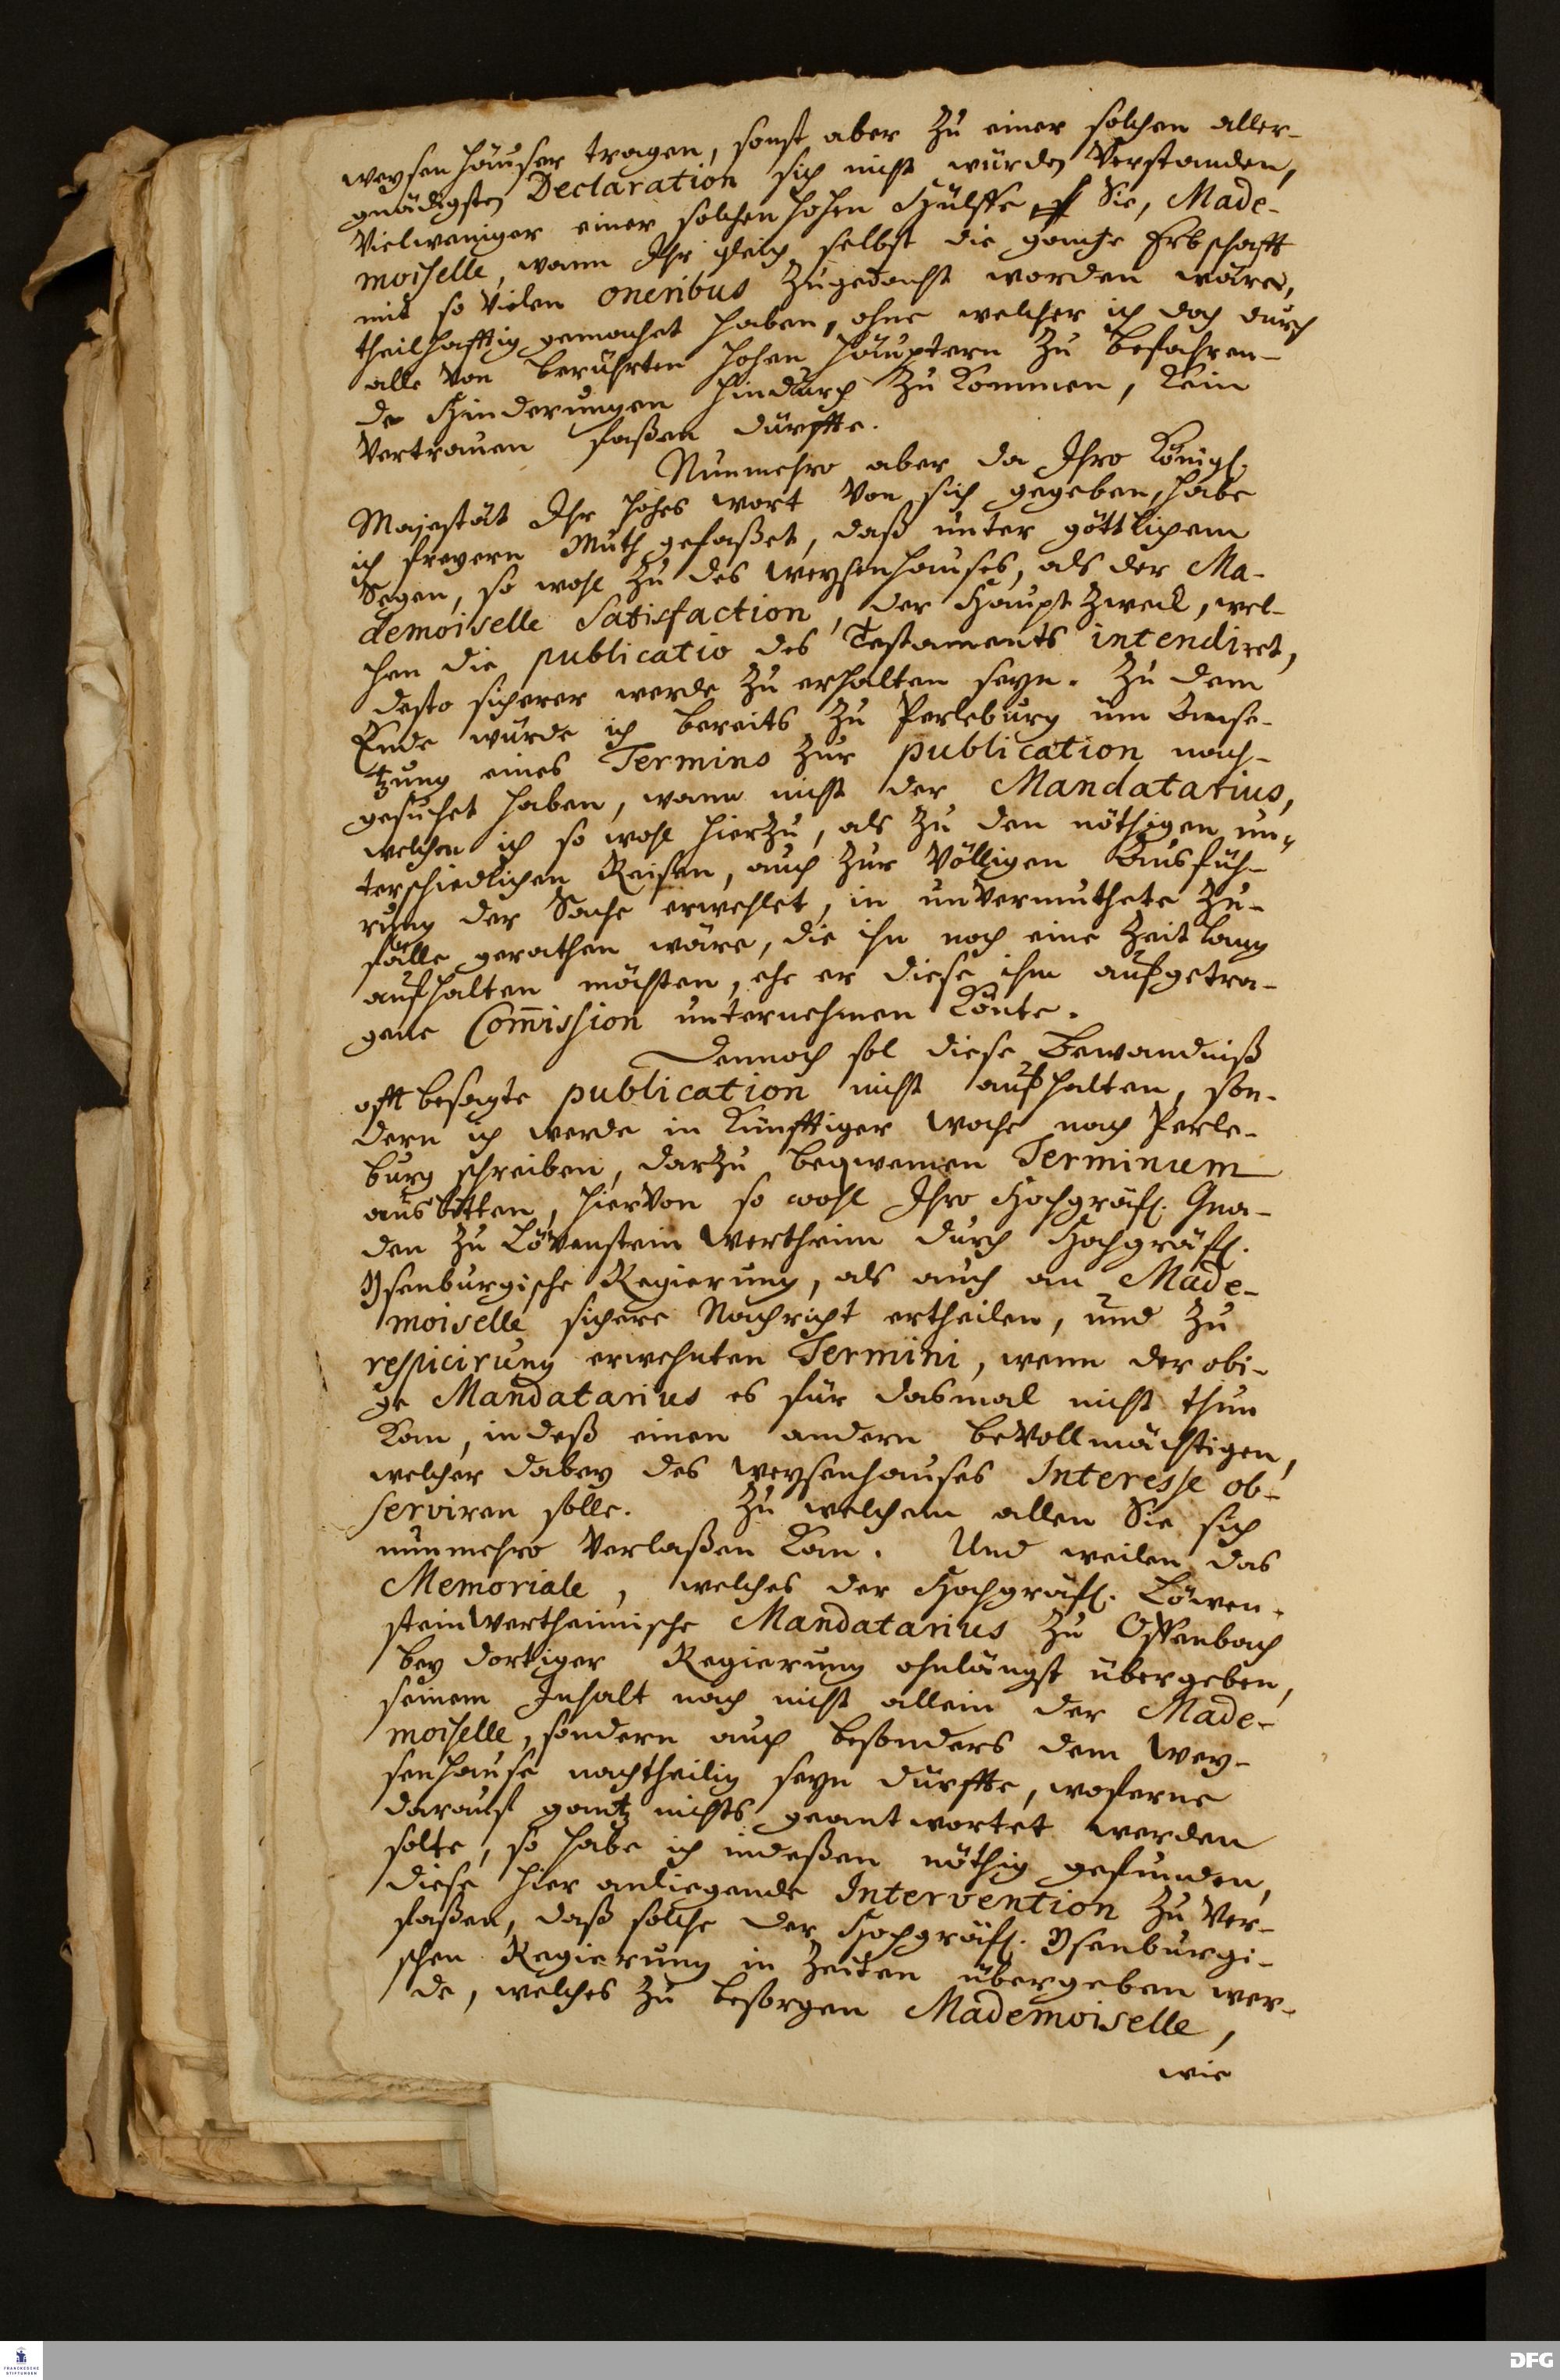 weysenhäuser tragen, sonst aber zu einer solchen aller-
gnädigsten Declaration sich nicht würden verstanden,
vielweniger einer solchen hohen Hülffe Sie, Made-
moiselle, wann Ihr gleich selbst die gantze Erbschafft
mit so vielen oneribus zugedacht worden wäre,
theilhafftig gemachet haben, ohne welcher ich doch durch
alle von berührten hohen Häuptern zu befahren-
de Hinderungen hindurch zu kommen, kein
Vertrauen faßen dürffte.
Nunmehro aber da Ihro Königl.
Majestät Ihr hohes wort von sich gegeben, habe
ich freyern Muth gefaßet, daß unter göttlichem
Segen, so wohl zu des weysenhauses, als der Ma-
demoiselle Satisfaction, der Haupt Zweck, wel-
chen die publicatio des Testaments intendiret,
desto sicherer werde zu erhalten seyn. Zu dem
Ende würde ich bereits zu Perleburg um Anse-
tzung eines Termins zur publication nach-
gesuchet haben, wann nicht der Mandatarius,
welchen ich so wohl hierzu, als zu den nöthigen un-
terschiedlichen Reisen, auch zur völligen Ausfüh-
rung der Sache erwehlet, in unvermuthete Zu-
fälle gerathen wäre, die ihn noch eine Zeit lang
aufhalten möchten, ehe er diese ihm aufgetra-
gene Com̄ission unternehmen könte.
Dennoch sol diese Bewandniß
offt besagte publication nicht aufhalten, son-
dern ich werde in künfftiger Woche nach Perle-
burg schreiben, darzu beqwemen Terminum
ausbitten, hiervon so wohl Ihro Hochgräfl. Gna-
den zu Lövenstein Wertheim durch Hochgräfl.
Ysenburgische Regierung, als auch an Made-
moiselle sichere Nachricht ertheilen, und zu
respicirung erwehnten Termini, wenn der obi-
ge Mandatarius es für dasmal nicht thun
kan, indeß einen andern bevollmächtigen,
welcher dabey des weysenhauses Interesse ob-
serviren solle. Zu welchem allen Sie sich
nunmehro verlaßen kan. Und weilen das
Memoriale, welches der Hochgräfl. Löwen-
steinwertheimische Mandatarius zu Offenbach
bey dortiger Regierung ohnlängst übergeben,
seinem Inhalt nach nicht allein der Made-
moiselle, sondern auch besonders dem wey-
senhause nachtheilig seyn dürffte, woferne
darauf gantz nichts geantwortet werden
solte, so habe ich indeßen nöthig gefunden,
diese hier anliegende Intervention zu ver-
faßen, daß solche der Hochgräfl. Ysenburgi-
schen Regierung in Zeiten übergeben wer-
de, welches zu besorgen Mademoiselle,
wie
FRANCKESCHE STIFTUNGEN
DFG